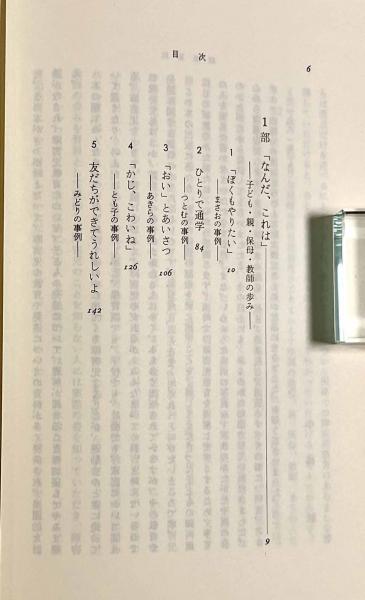 目次
6
1部 「なんだ、これは」 9
──子ども・親・保母・教師の歩み──
1 「ぼくもやりたい」 10
──まさおの事例──
2 ひとりで通学 84
──つとむの事例──
3 「おい」とあいさつ 106
──あきらの事例──
4 「かじ、こわいね」 126
──とも子の事例──
5 友だちができてうれしいよ 142
──みどりの事例──